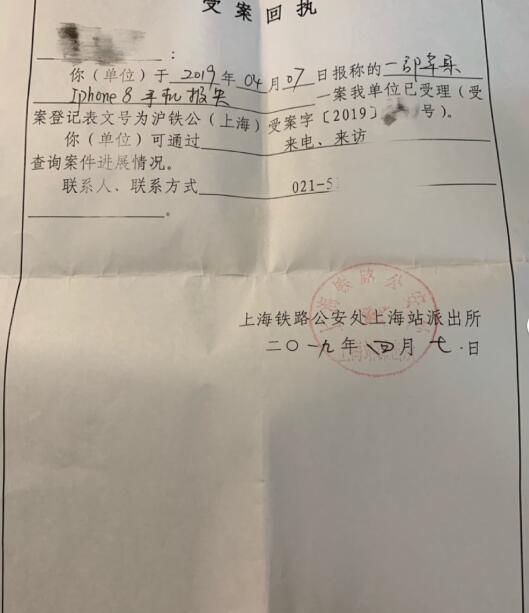 受案回执
：
你（单位）于2019年04月07日报称的一部苹果
Iphone8手机报失一案我单位已受理（受
案登记表文号为沪铁公（上海）受案字［2019］号）。
你（单位）可通过来电、来访
查询案件进展情况。
联系人、联系方式021-5
。
上海铁路公安处上海站派出所
二〇一九年四月七日